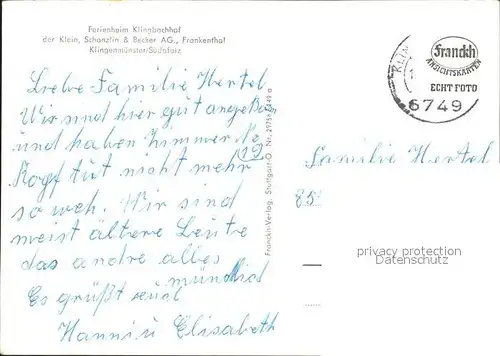 Ferienheim Klingbachhof
der Klein, Schanzlin & Becker AG., Frankenthal
Klingenmünster/Südpfalz
Liebe Familie Hertel
Wir sind hier gut angekom
und haben Zimmer No
19
Kopf tut nicht mehr
so weh. Wir sind
meist ältere Leute
das andre alles
mündlich
Es grüßt
Hanni u Elisabeth
Franckh-Verlag, Stuttgart-O
KLIN
Franckh
ANSICHTSKARTEN
ECHT FOTO
6749
Familie Hertel
85
privacy protection
Datenschutz